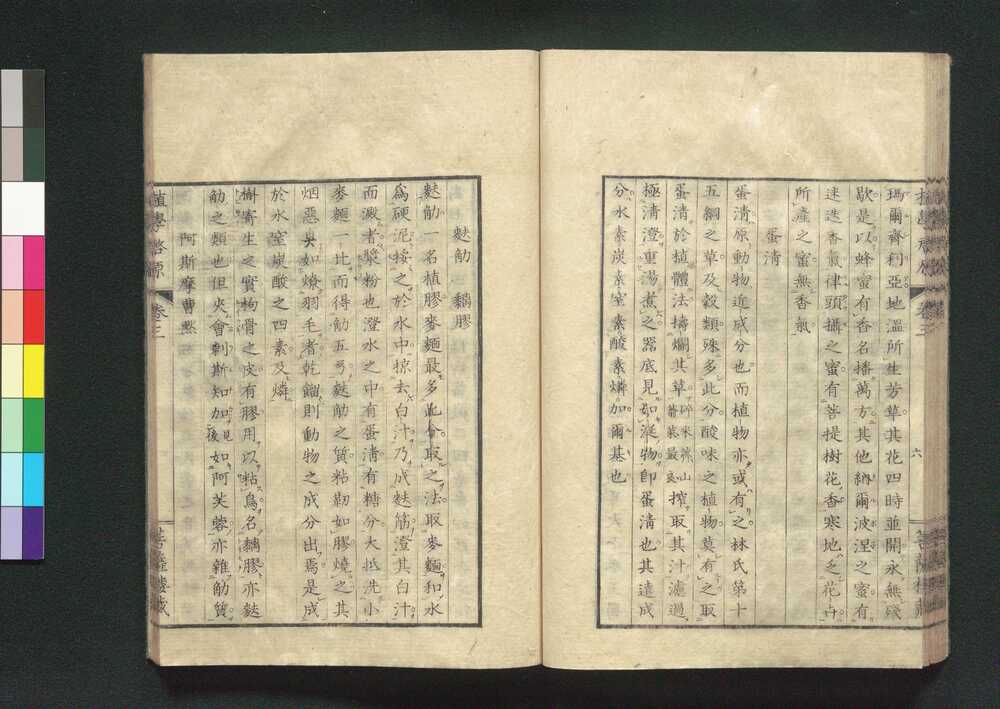 瑪爾齊利亞地溫所生芳草其花四時並開永無殘
歇是以蜂蜜有香名播萬方其他納爾波涅之蜜有
迷迭香氣律頭攝之蜜有菩提樹花香寒地乏花卉
所產之蜜無香氣
蛋淸
蛋淸原動物近成分也而植物亦或有之林氏第十
五綱之草及穀類殊多此分酸味之植物莫有之取
蛋淸於植體法擣爛其草碎米薺山蓍菜最良搾取其汁濾過
極淸澄重湯煮之器底見如凝物卽蛋淸也其遠成
分水素炭素窒素酸素燐加爾基也
六
麩觔 黐膠
麩觔一名植膠麥麵最多此分取之法取麥麵和水
爲硬泥挼之於水中掠去白汁乃成麩筋澄其白汁
而澱者漿粉也澄水之中有蛋淸有糖分大抵洗小
麥麵一比而得觔五弓麩觔之質粘韌如膠燒之其
烟惡臭如燎羽毛者乾餾則動物之成分出焉是成
於水窒炭酸之四素及燐
槲寄生之實枸骨之皮有膠用以粘鳥名黐膠亦麩
觔之類也但夾會剌斯知加見後如阿芙蓉亦雜觔質
阿斯摩曹
植學啓源
卷三
菩薩樓藏